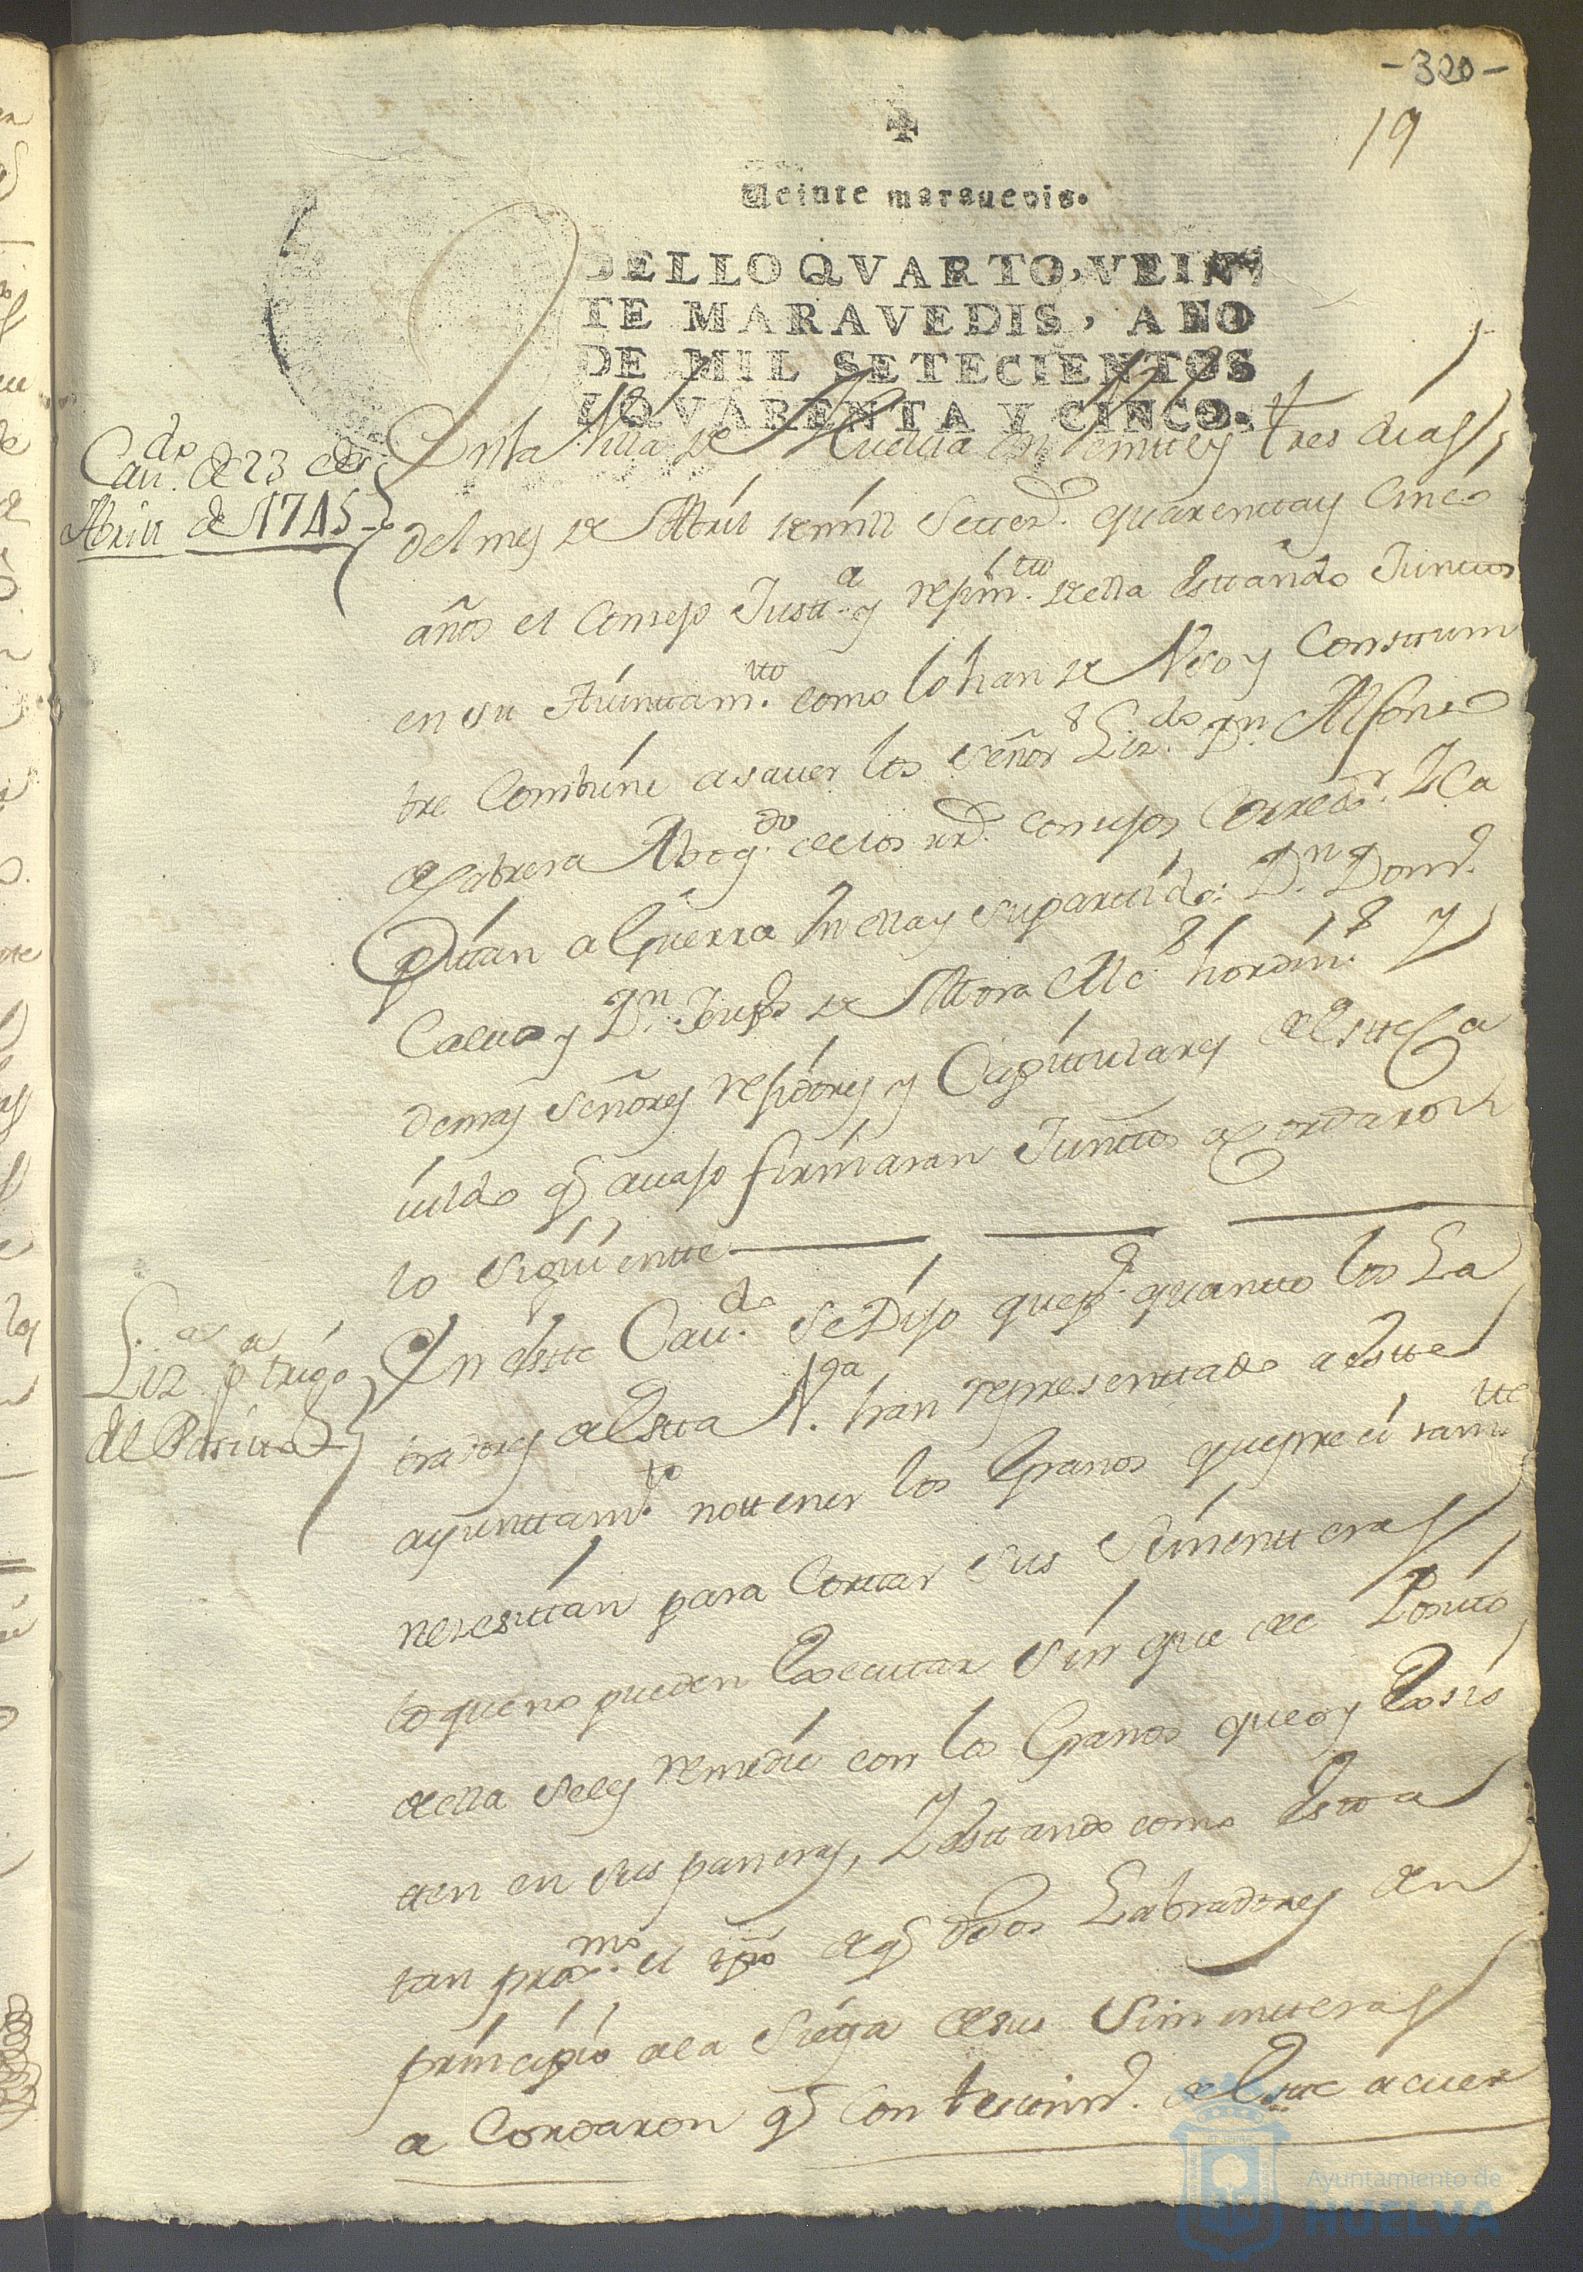 -320-
19
Veinte maravedis.
SELLO QVARTO, VEIN
TE MARAVEDIS, AÑO
DE MIL SETECIENTOS
Y QVARENTA Y CINCO.
Cau.do de 23 de
Abrill de 1745
En la Villa de Huelva en Veintte y tres dias
del mes de Abril de mill Settez.s quarentta y Cinco
años el Consejo Justt.a y rejim.tto de ella esttando Junttos
en su Aiunttam.tto como lo han de Uso y Consttum
bre Combiene a sauer los Señor.s Liz.do D.n Alfonso
de Cabrera Abog.do de los rr.s Consejos Corred.r y Ca
pittan a Guerra en ella y su parttido: D.n Dom.o
Caluo y D.n Jusephe de Mora Alc.s hordin.s y
demas Señores rejidores y Capittulares de estte Ca
uildo q auajo firmaran Junttos acordaron
lo siguientte
Liz.as p.a trigo
del Positto
En estte Cau.do se Dijo que p.r quantto los La
bradores de estta V.a han representtado a estte
ayunttam.to no ttener los Granos que precisam.tte
nesesittan para Corttar sus Simentteras
lo que no pueden Executar sin que de el Positto
de ella se les remedie con los Granos que oy Exsis
ten en sus paneras, Y esttando como estta
tan prox.mo el tpo de q dhos Labradores den
principio a la Siega de sus Simentteras
a Cordaron q Con testtim.o de estte acuer
Ayuntamiento de
HUELVA